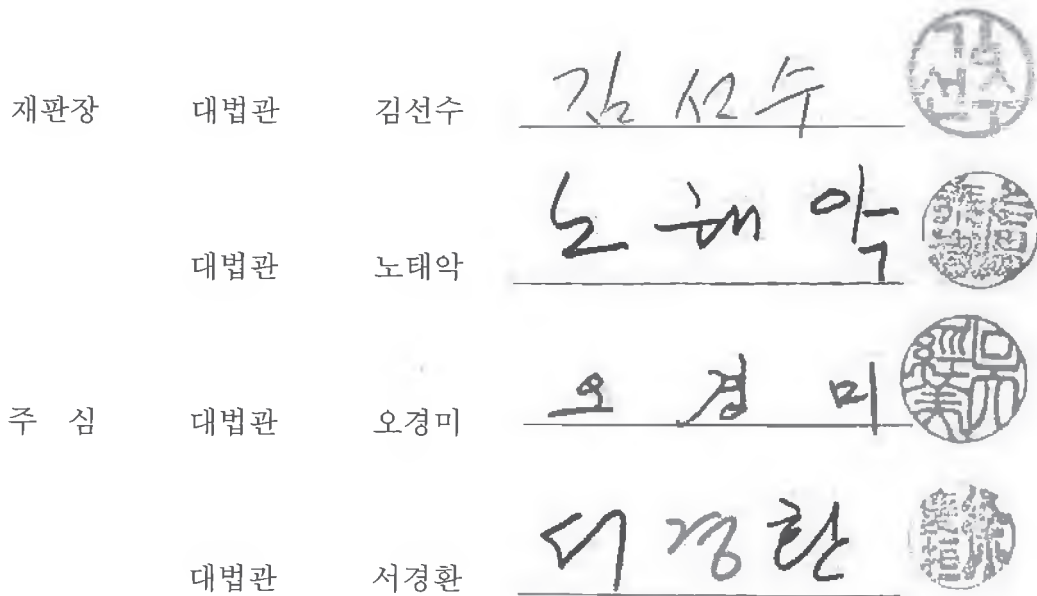 재판장 대법관 김선수 김선수
대법관 노태악 노태악
주 심 대법관 오경미 오경미
대법관 서경환 서경환